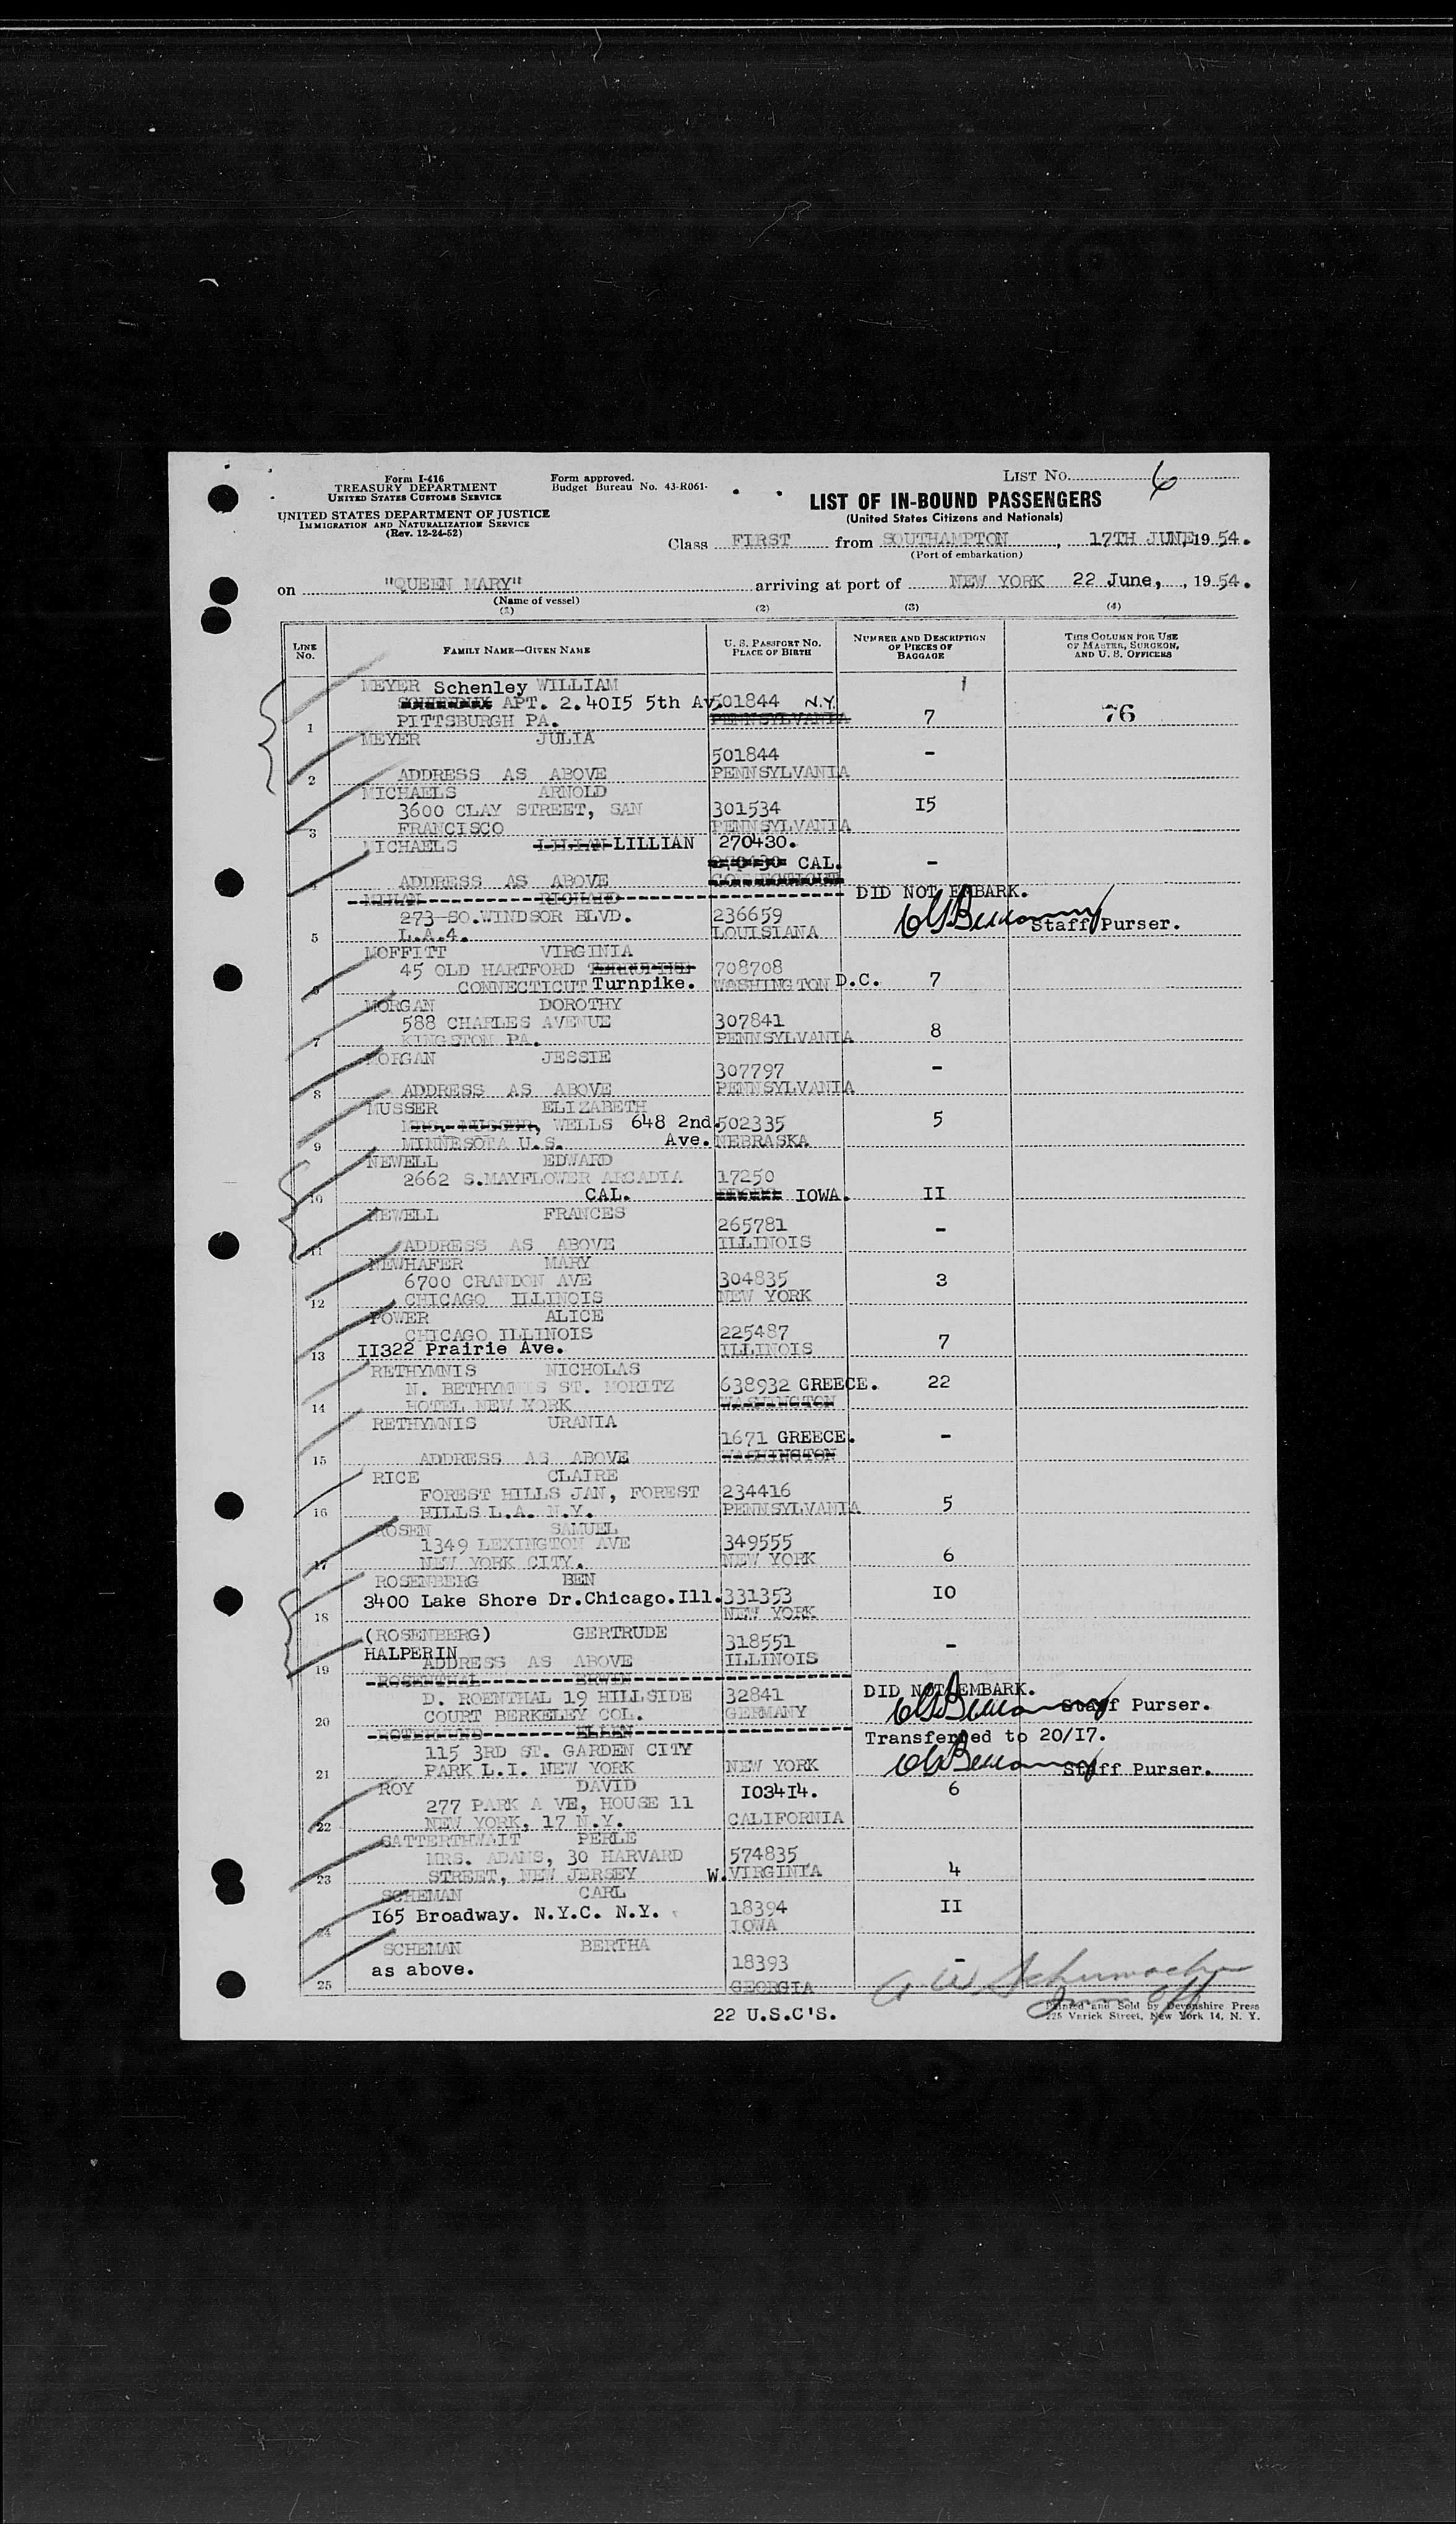 Form I-416
TREASURY DEPARTMENT
UNITED STATES CUSTOMS SERVICE
UNITED STATES DEPARTMENT OF JUSTICE
IMMIGRATION AND NATURALIZATION SERVICE
(Rev. 12-24-52)
Form approved.
Budget Bureau No. 43-R061-
LIST NO. 6
LIST OF IN-BOUND PASSENGERS
(United States Citizens and Nationals)
Class FIRST from SOUTHAMPTON, 17TH JUNE 19 54.
(Port of embarkation)
on "QUEEN MARY" arriving at port of NEW YORK 22 June, , 19 54.
(Name of vessel)
(1) (2) (3) (4)
LINE NO.
FAMILY NAME—GIVEN NAME
U. S. PASSPORT NO.
PLACE OF BIRTH
NUMBER AND DESCRIPTION
OF PIECES OF
BAGGAGE
THIS COLUMN FOR USE
OF MASTER, SURGEON,
AND U. S. OFFICERS
MEYER Schenley WILLIAM
APT. 2.4015 5th Av. 501844 N.Y.
1 PITTSBURGH PA. PENNSYLVANIA 7 76
MEYER JULIA
501844 -
2 ADDRESS AS ABOVE PENNSYLVANIA
MICHAELS ARNOLD
3600 CLAY STREET, SAN 301534 I5
3 FRANCISCO PENNSYLVANIA
MICHAELS LILIAN LILLIAN 270430.
270430 CAL. -
4 ADDRESS AS ABOVE CONNECTICUT
RICHARD DID NOT EMBARK.
273 SO.WINDSOR BLVD. 236659
5 L.A.4. LOUISIANA Staff Purser.
MOFFITT VIRGINIA
45 OLD HARTFORD 708708
6 CONNECTICUT Turnpike. WASHINGTON D.C. 7
MORGAN DOROTHY
588 CHARLES AVENUE 307841
7 KINGSTON PA. PENNSYLVANIA 8
MORGAN JESSIE
307797 -
8 ADDRESS AS ABOVE PENNSYLVANIA
MUSSER ELIZABETH
MRS. MUSSER, WELLS 648 2nd. 502335 5
9 MINNESOTA U.S. Ave. NEBRASKA
NEWELL EDWARD
2662 S.MAYFLOWER ARCADIA 17250
10 CAL. IOWA. II
NEWELL FRANCES
265781 -
11 ADDRESS AS ABOVE ILLINOIS
NEWHAFER MARY
6700 CRANDON AVE 304835 3
12 CHICAGO ILLINOIS NEW YORK
POWER ALICE
CHICAGO ILLINOIS 225487
13 II322 Prairie Ave. ILLINOIS 7
RETHYMNIS NICHOLAS
N. BETHYMNIS ST. MORITZ 638932 GREECE. 22
14 HOTEL NEW YORK WASHINGTON
RETHYMNIS URANIA
1671 GREECE. -
15 ADDRESS AS ABOVE WASHINGTON
RICE CLAIRE
FOREST HILLS JAN, FOREST 234416
16 HILLS L.A. N.Y. PENNSYLVANIA 5
ROSEN SAMUEL
1349 LEXINGTON AVE 349555
17 NEW YORK CITY. NEW YORK 6
ROSENBERG BEN
3400 Lake Shore Dr.Chicago.Ill. 331353 IO
18 NEW YORK
(ROSENBERG) GERTRUDE
HALPERIN 318551 -
19 ADDRESS AS ABOVE ILLINOIS
ROSENTHAL ERWIN DID NOT EMBARK.
D. ROENTHAL 19 HILLSIDE 32841
20 COURT BERKELEY COL. GERMANY Staff Purser.
ELLEN Transferred to 20/I7.
115 3RD ST. GARDEN CITY
21 PARK L.I. NEW YORK NEW YORK Staff Purser.
ROY DAVID I034I4. 6
277 PARK A VE, HOUSE 11
22 NEW YORK, 17 N.Y. CALIFORNIA
SATTERTHWAIT PERLE
MRS. ADAMS, 30 HARVARD 574835
23 STREET, NEW JERSEY W.VIRGINIA 4
SCHEMAN CARL
I65 Broadway. N.Y.C. N.Y. 18394 II
24 IOWA
SCHEMAN BERTHA
as above. 18393 -
25 GEORGIA
A W Schumacher
22 U.S.C'S.
Printed and Sold by Devonshire Press
225 Varick Street, New York 14, N. Y.